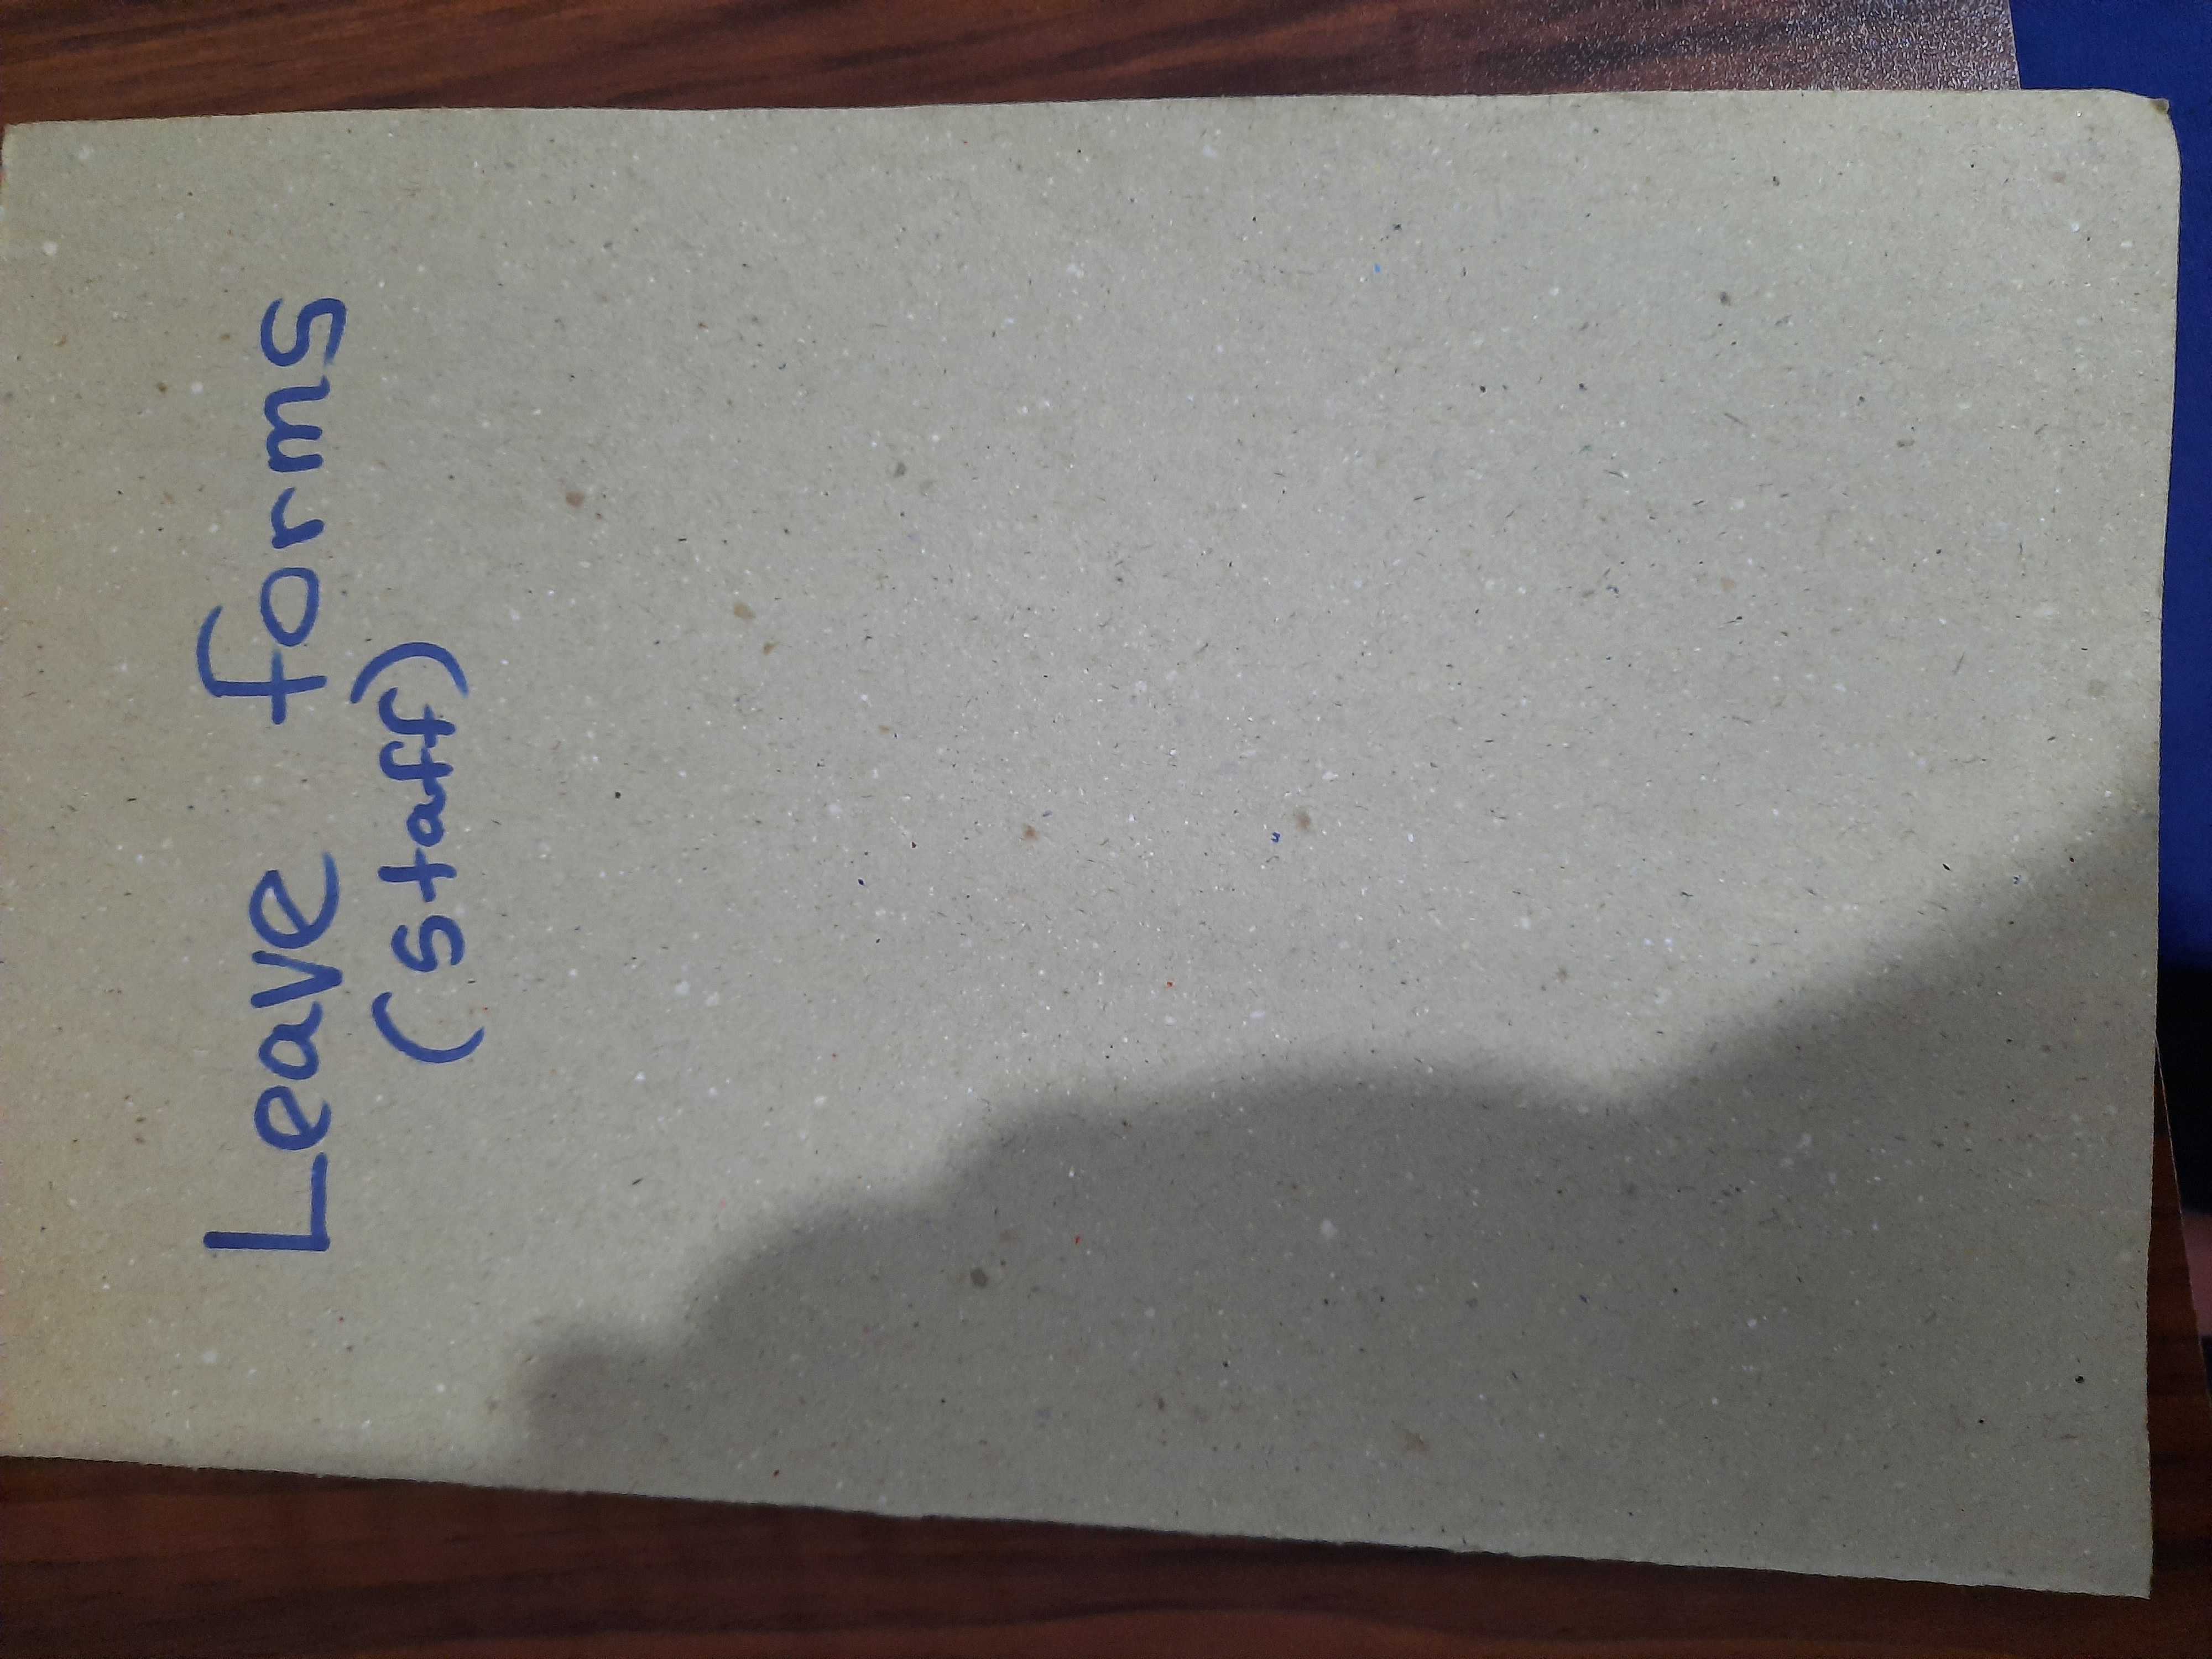 Leave forms
(Staff)